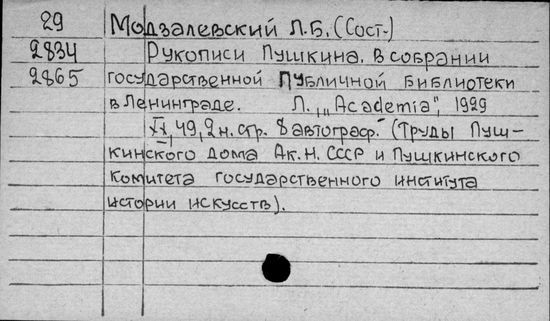 29 Модзалевский Л.Б. (Сост.)
2834 Рукописи Пушкина. В собрании
2865 государственной Публичной библиотеки
в Ленинграде. Л. „Academia", 1929
XX, 49, 2 н. стр. 8 автограф. (Труды Пуш-
кинского дома Ак. Н. СССР и Пушкинского
Комитета государственного института
истории искусств).